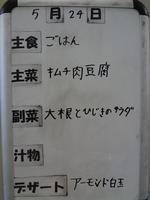 5月24日
主食 ごはん
主菜 キムチ肉豆腐
副菜 大根とひじきのサラダ
汁物
デザート アーモンド白玉